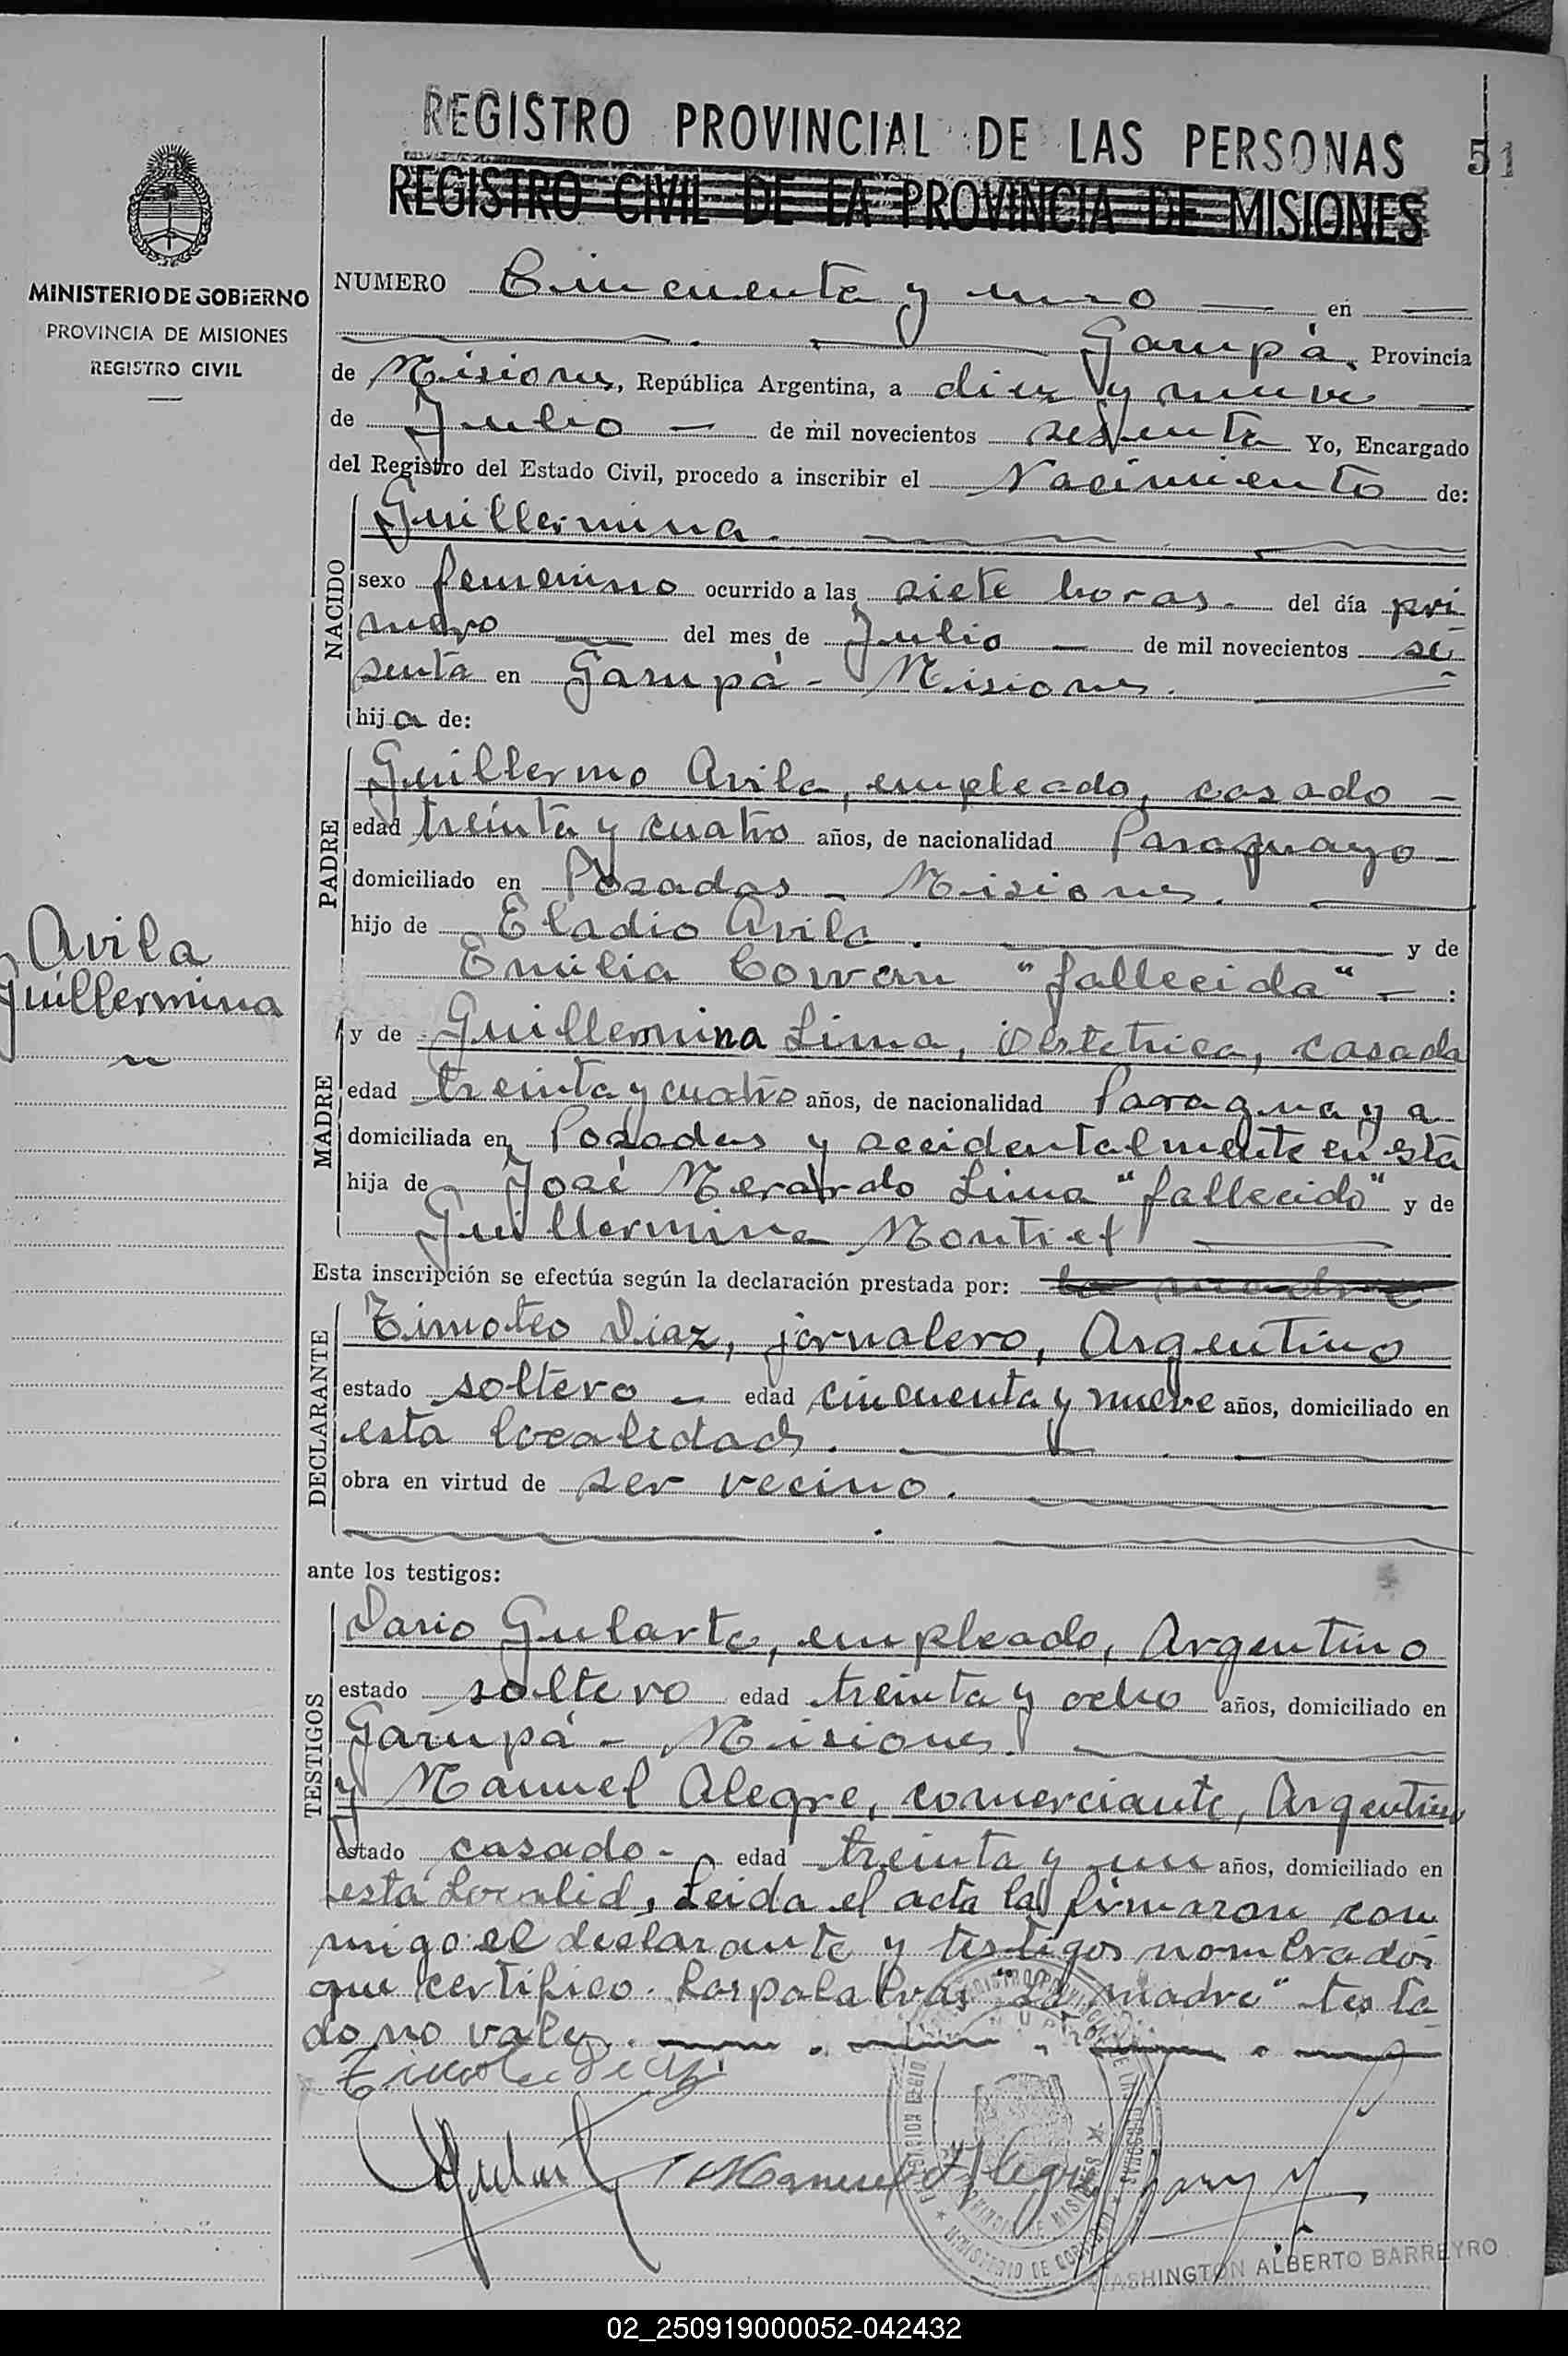 REGISTRO PROVINCIAL DE LAS PERSONAS
51
REGISTRO CIVIL DE LA PROVINCIA DE MISIONES
MINISTERIO DE GOBIERNO
PROVINCIA DE MISIONES
REGISTRO CIVIL
Avila
Guillermina
NUMERO Cincuenta y uno en
Garupá, Provincia
de Misiones, República Argentina, a diez y nueve
de Julio de mil novecientos sesenta Yo, Encargado
del Registro del Estado Civil, procedo a inscribir el Nacimiento de:
NACIDO
Guillermina.
sexo femenino ocurrido a las siete horas. del día pri
mero del mes de Julio de mil novecientos se
senta en Garupá - Misiones.
hija de:
PADRE
Guillermo Avila, empleado, casado
edad treinta y cuatro años, de nacionalidad Paraguayo
domiciliado en Posadas - Misiones.
hijo de Eladio Avila. y de
Emilia "fallecida" - :
MADRE
y de Guillermina Lima, Obstetrica, casada
edad treinta y cuatro años, de nacionalidad Paraguaya
domiciliada en Posadas y accidentalmente en esta
hija de José Merardo Lima "fallecido" y de
Guillermina Montiel
Esta inscripción se efectúa según la declaración prestada por: la madre
DECLARANTE
Timoteo Diaz, jornalero, Argentino
estado soltero - edad cincuenta y nueve años, domiciliado en
esta localidad.
obra en virtud de ser vecino.
ante los testigos:
TESTIGOS
Dario Gularte, empleado, Argentino
estado soltero edad treinta y ocho años, domiciliado en
Garupá - Misiones.
y Manuel Alegre, comerciante, Argentino
estado casado - edad treinta y un años, domiciliado en
esta Localid, Leida el acta la firmaron con
migo el declarante y testigos nombrados
que certifico. Las palabras "La madre" testa
do no vale.
Timoteo Diaz
Manuel Alegre
WASHINGTON ALBERTO BARREYRO
02_250919000052-042432